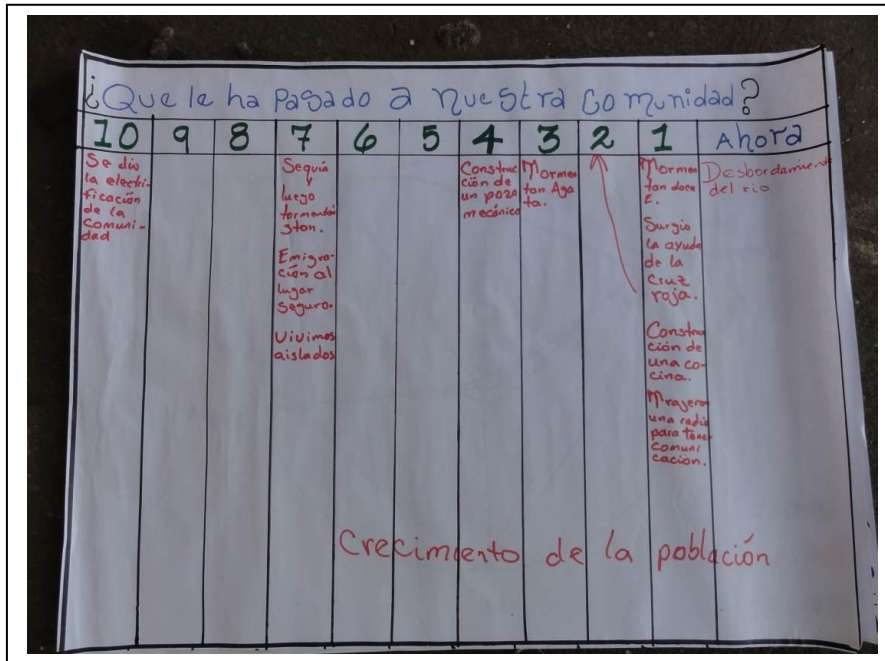 ¿Que le ha Pasado a nuestra comunidad?
10 9 8 7 6 5 4 3 2 1 Ahora
Se dio
la electri-
ficación
de la
Comuni-
dad
Sequia
y
luego
tormenta
Stan.
Emigra-
ción al
lugar
seguro.
Vivimos
aislados
Construc
ción de
un pozo
mecánico
Tormen
ta Aga
ta.
Tormen
ta doce
E.
Surgio
la ayuda
de la
Cruz
roja.
Constru
ción de
una co-
cina.
Trajeron
una radio
para tener
Comuni
cacion.
Desbordamiento
del rio
Crecimiento de la población